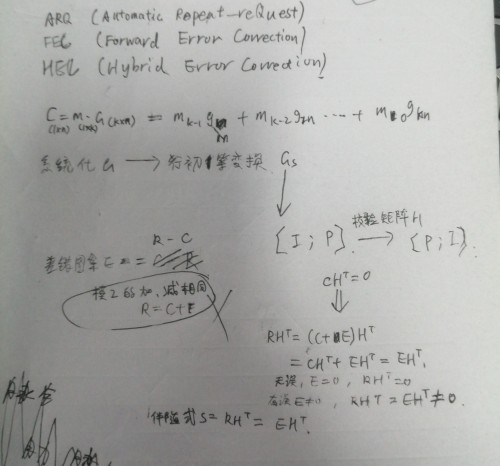 ARQ (Automatic Repeat-reQuest)
FEC (Forward Error Correction)
HEC (Hybrid Error Correction)
C = m·G(k×n) = m_{k-1}g_{1n} + m_{k-2}g_{2n} ... + m_0 g_{kn}
(1×n) (1×k)
系统化G → 行初等变换 Gs
[I ; P] 校验矩阵H → [P ; I]
CHᵀ=0
差错图案 E = R-C
模2的加,减相同
R = C+E
RHᵀ = (C+E)Hᵀ
= CHᵀ + EHᵀ = EHᵀ.
无误, E=0, RHᵀ=0
有误 E≠0, RHᵀ = EHᵀ≠0.
伴随式 S = RHᵀ = EHᵀ.